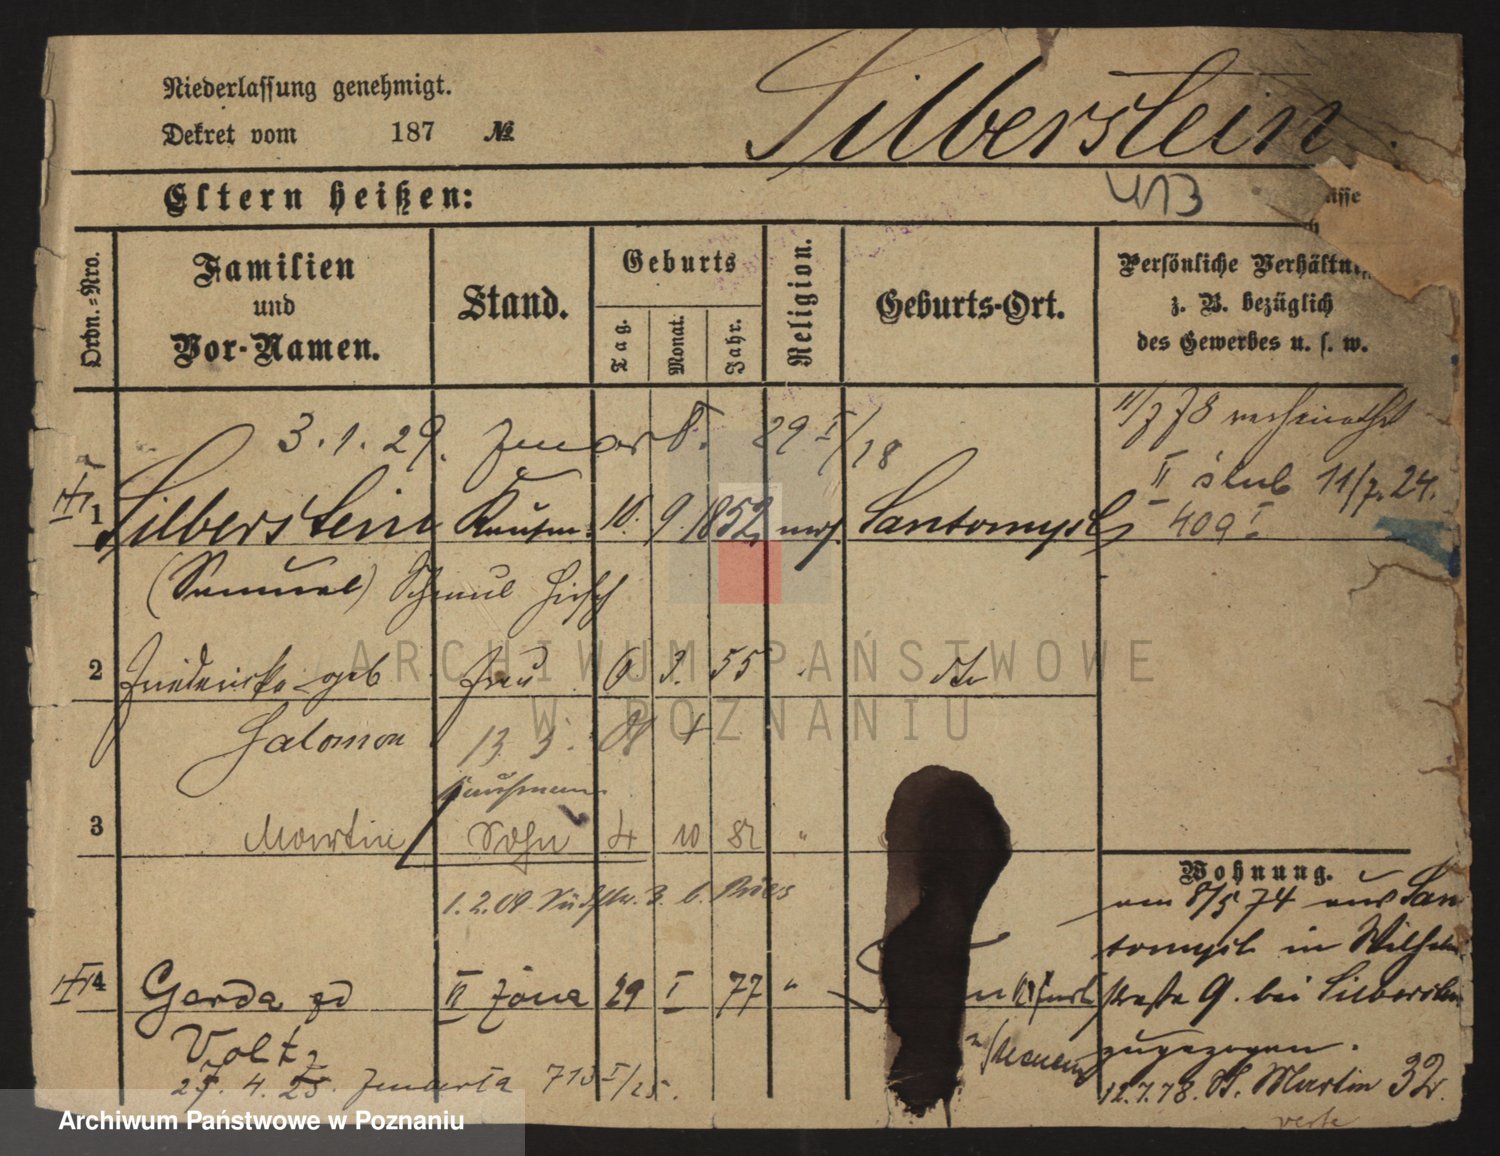 Niederlassung genehmigt.
Dekret vom 187 №
Silberstein
Eltern heißen:
413
Ordn.=Nro.
Familien
und
Vor-Namen.
Stand.
Geburts
Tag.
Monat.
Jahr.
Religion.
Geburts-Ort.
Persönliche
z. B. bezüglich
des Gewerbes u. s. w.
3.1.29. 29 I/18
11/7 78 verheirathet
II ślub 11/7.24.
1 Silberstein Kaufm. 10. 9. 1852 mos. Santomysl 409 I
(Samuel) Schmul Hirsch
2 Friederike geb Frau 6 3. 55 dto
Salomon
Kaufmann
3 Martin Sohn 4 10 82 "
1.2.09.
Wohnung.
am 8/5 74 aus San
tomysl in Wilhelm
straße 9. bei Silberstein
zugezogen.
12.7.78. St. Martin 32.
verte
4 Gerda zd II żona 29 I 77 "
Voltz
4. 25. 713 I/25.
ARCHIWUM PAŃSTWOWE
W POZNANIU
Archiwum Państwowe w Poznaniu